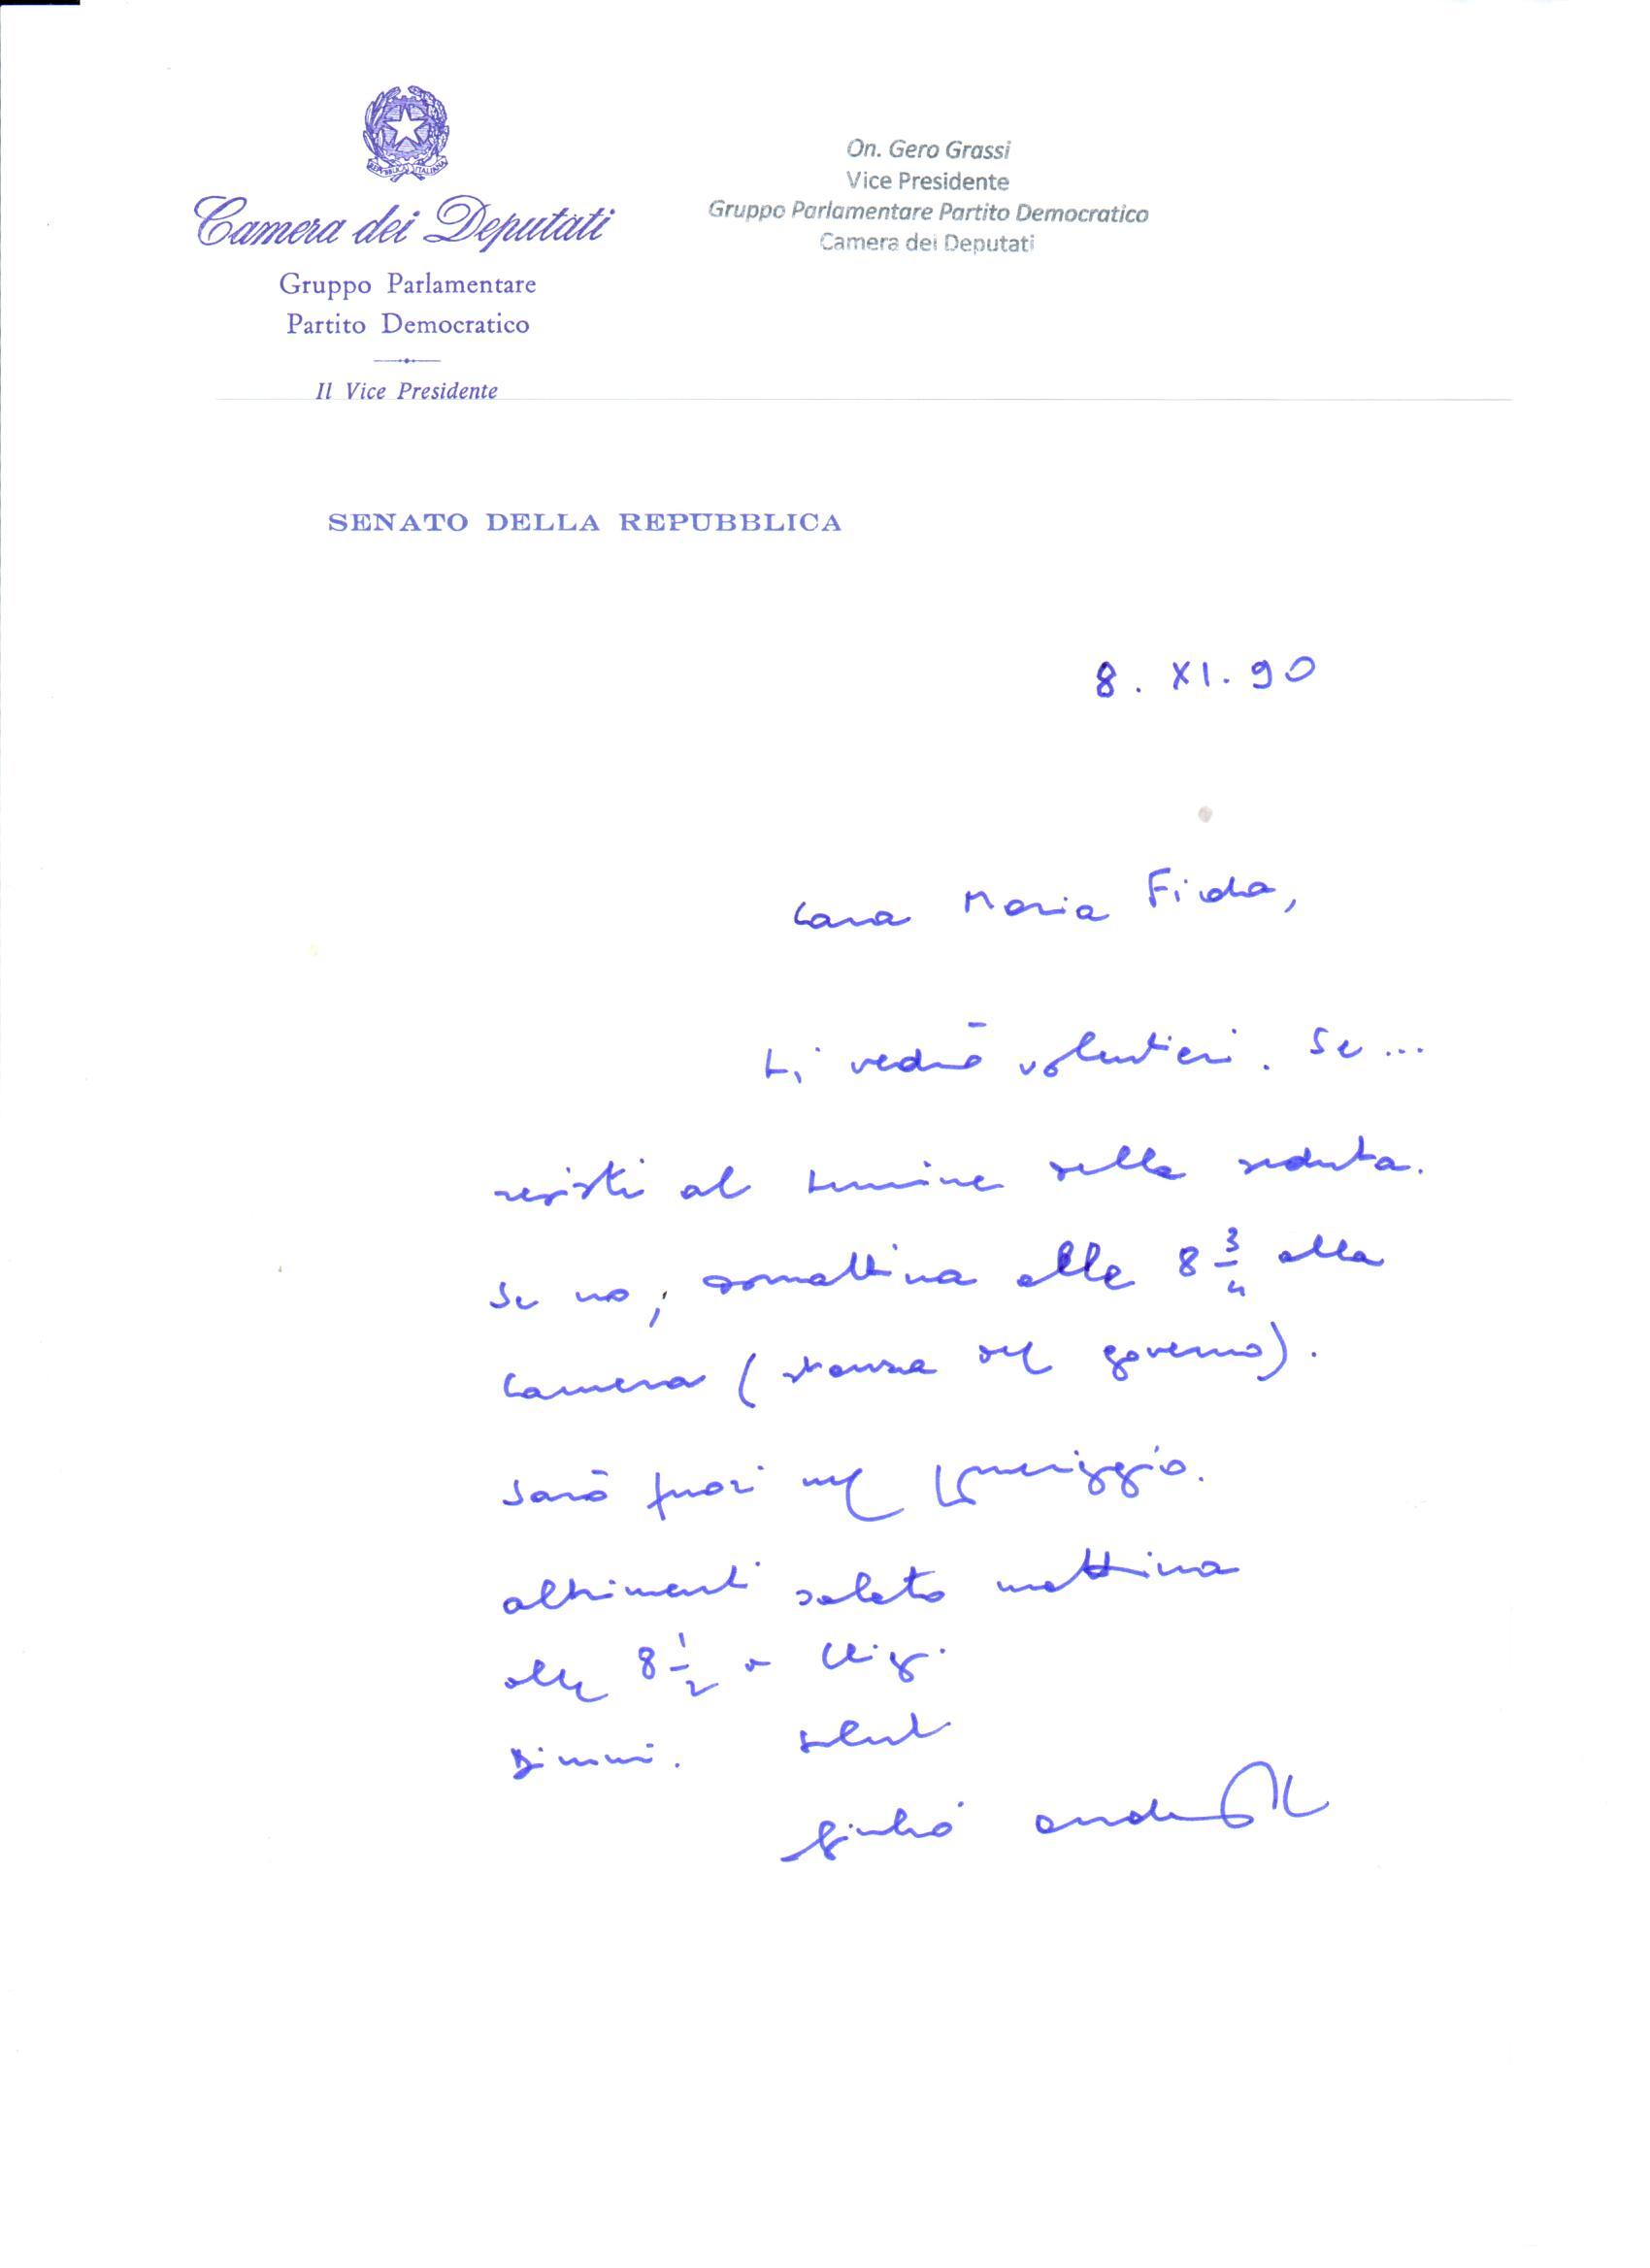 REPUBBLICA ITALIANA
Camera dei Deputati
Gruppo Parlamentare
Partito Democratico
Il Vice Presidente
On. Gero Grassi
Vice Presidente
Gruppo Parlamentare Partito Democratico
Camera dei Deputati
SENATO DELLA REPUBBLICA
8. XI. 90
Cara Maria Fida,
ti vedrò volentieri. Se ...
resisti al termine della seduta.
Se no, domattina alle 8 3/4 alla
Camera (stanza del governo).
Sarò fuori nel pomeriggio.
altrimenti sabato mattina
alle 8 1/2 a Chigi.
Dimmi.
Giulio Andreotti